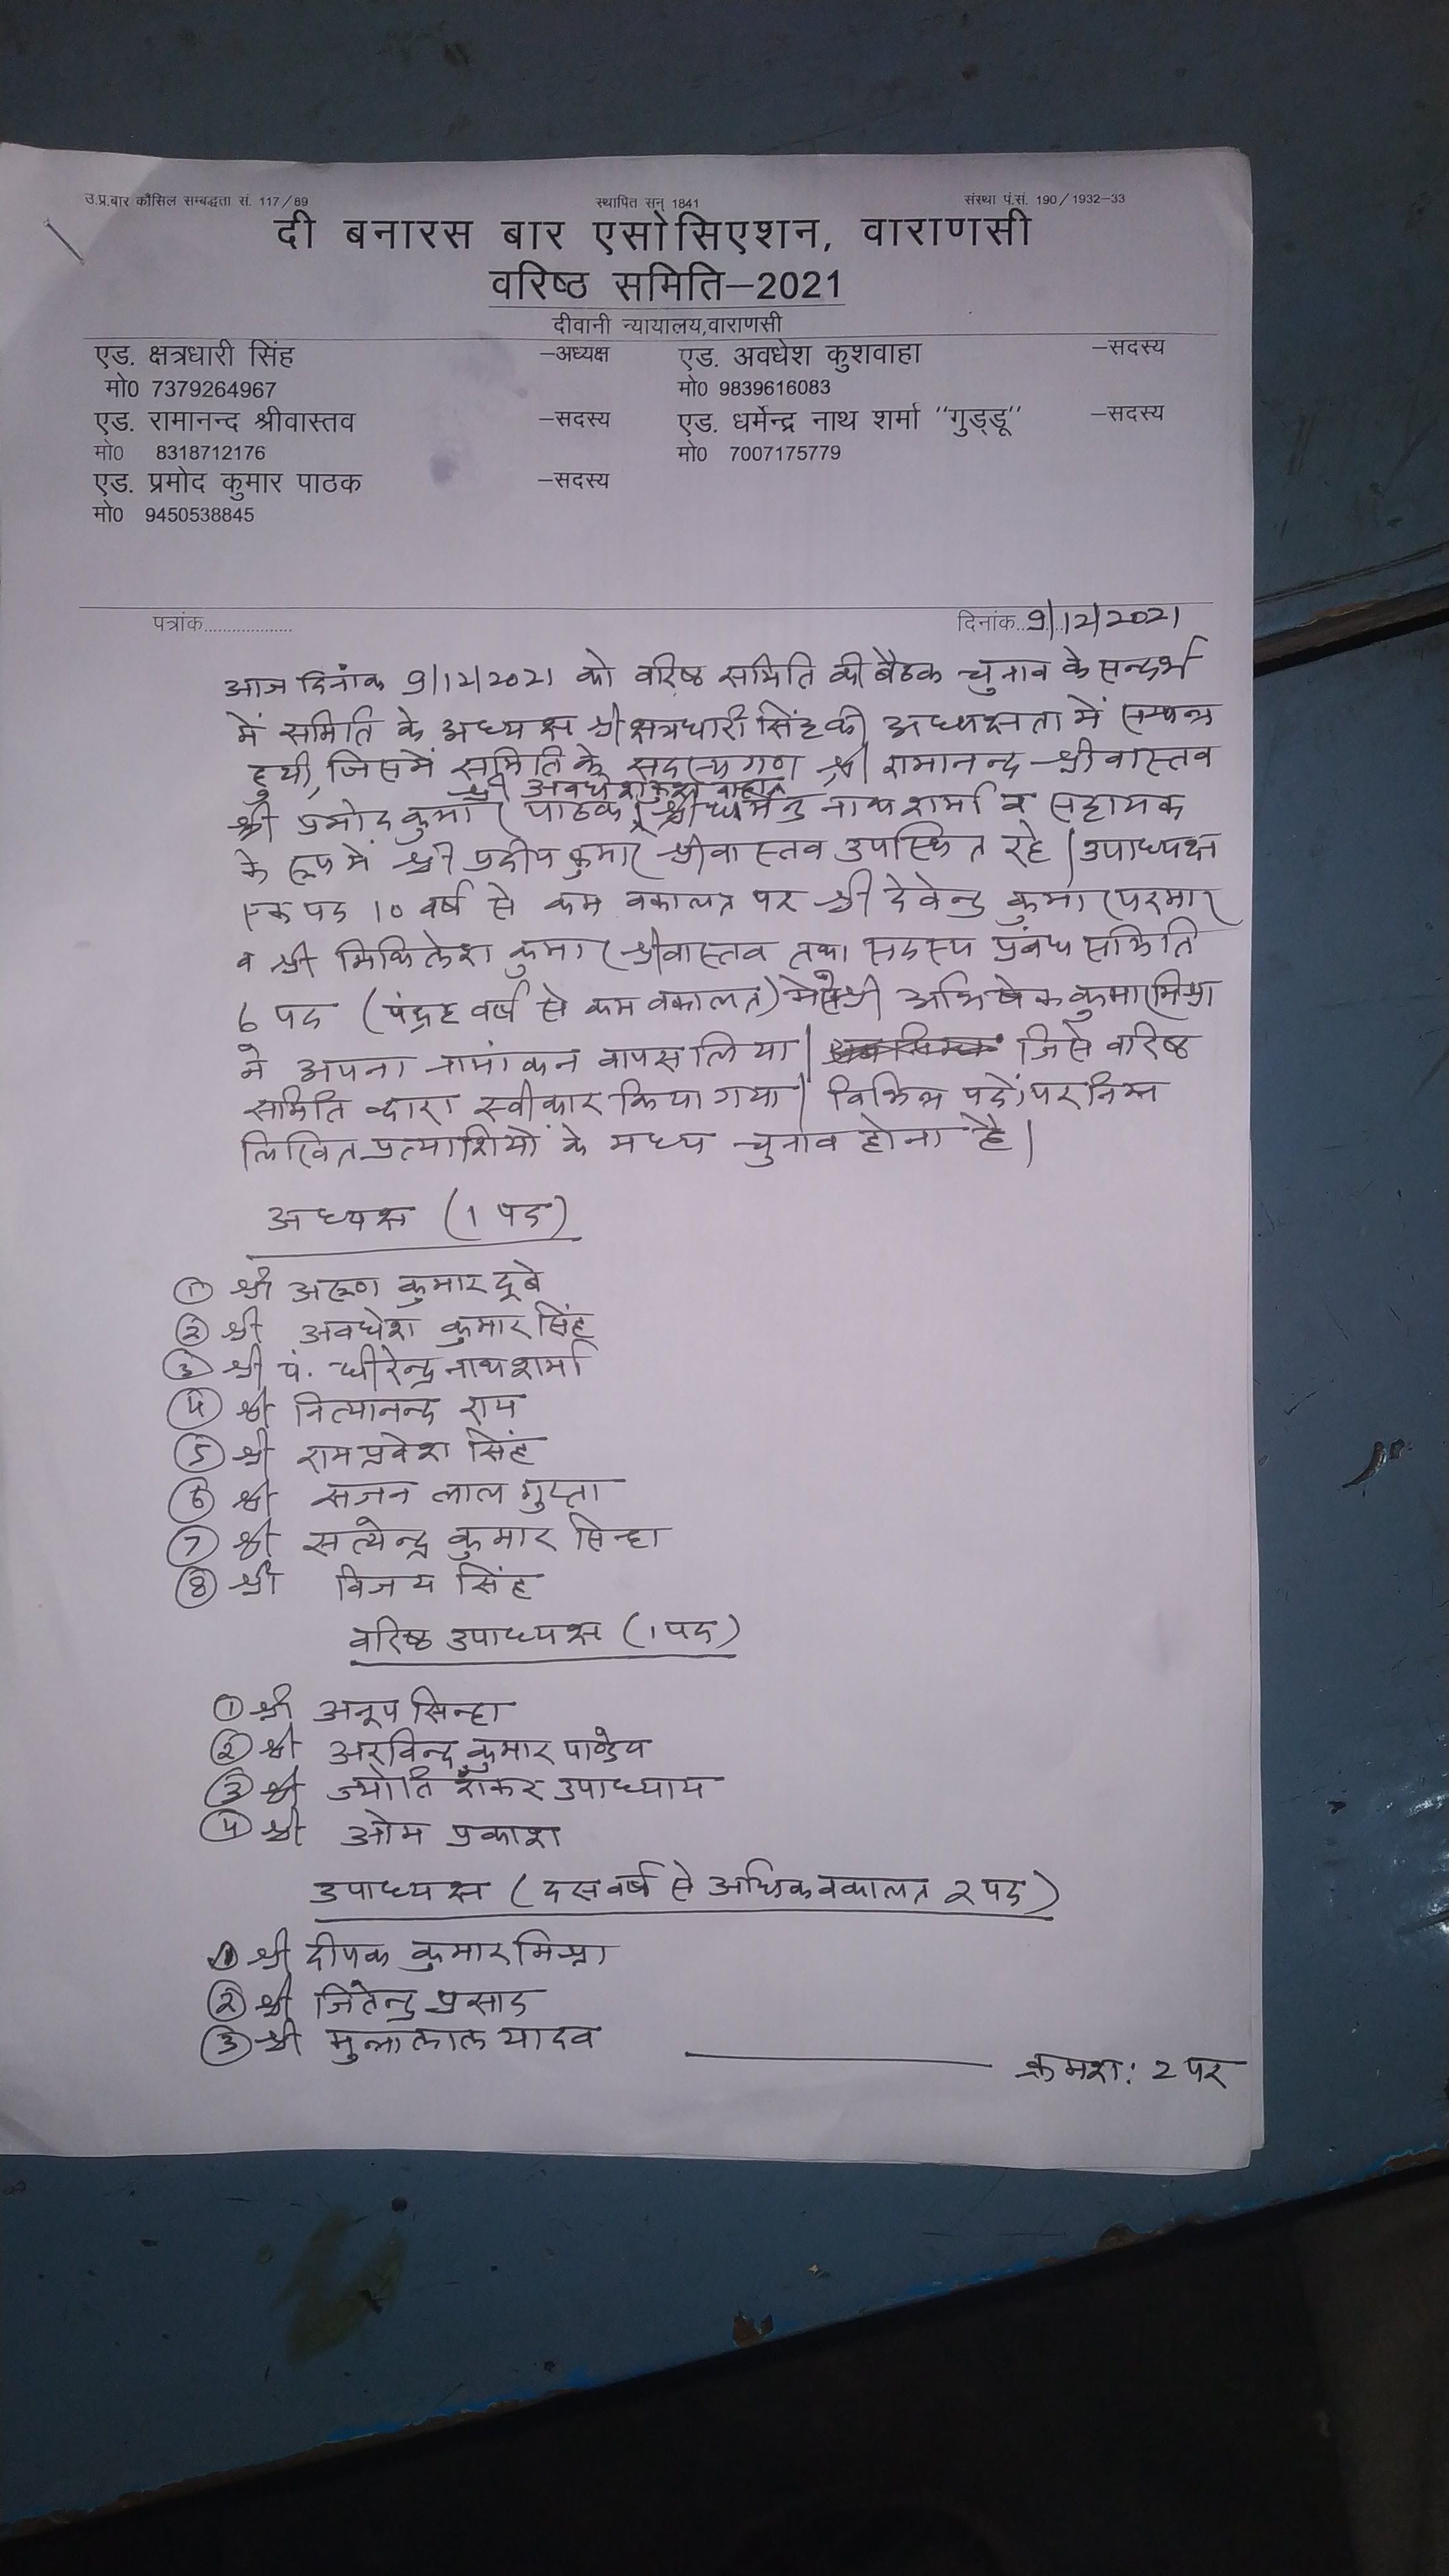 उ.प्र.बार कौंसिल सम्बद्धता सं. 117/89 स्थापित सन् 1841 संस्था पं.सं. 190/1932-33
दी बनारस बार एसोसिएशन, वाराणसी
वरिष्ठ समिति-2021
दीवानी न्यायालय,वाराणसी
एड. क्षत्रधारी सिंह -अध्यक्ष एड. अवधेश कुशवाहा -सदस्य
मो0 7379264967 मो0 9839616083
एड. रामानन्द श्रीवास्तव -सदस्य एड. धर्मेन्द्र नाथ शर्मा "गुड्डू" -सदस्य
मो0 8318712176 मो0 7007175779
एड. प्रमोद कुमार पाठक -सदस्य
मो0 9450538845
पत्रांक.................... दिनांक 9/12/2021
आज दिनांक 9/12/2021 को वरिष्ठ समिति की बैठक चुनाव के सन्दर्भ
में समिति के अध्यक्ष श्री क्षत्रधारी सिंह की अध्यक्षता में सम्पन्न
हुयी, जिसमें समिति के सदस्यगण श्री रामानन्द श्रीवास्तव
श्री अवधेश कुशवाहा
श्री प्रमोद कुमार पाठक, श्री धर्मेन्द्र नाथ शर्मा व सहायक
के रूप में श्री प्रदीप कुमार श्रीवास्तव उपस्थित रहे। उपाध्यक्ष
एक पद 10 वर्ष से कम वकालत पर श्री देवेन्द्र कुमार परमार
व श्री मिथिलेश कुमार श्रीवास्तव तथा सदस्य प्रबंध समिति
6 पद (पंद्रह वर्ष से कम वकालत) में से श्री अभिषेक कुमार मिश्रा
ने अपना नामांकन वापस लिया। जिसे वरिष्ठ
समिति द्वारा स्वीकार किया गया। विभिन्न पदों पर निम्न
लिखित प्रत्याशियों के मध्य चुनाव होना है।
अध्यक्ष (1 पद)
① श्री अरूण कुमार दूबे
② श्री अवधेश कुमार सिंह
③ श्री पं. धीरेन्द्र नाथ शर्मा
④ श्री नित्यानन्द राय
⑤ श्री रामप्रवेश सिंह
⑥ श्री सजन लाल गुप्ता
⑦ श्री सत्येन्द्र कुमार सिन्हा
⑧ श्री विजय सिंह
वरिष्ठ उपाध्यक्ष (1 पद)
① श्री अनूप सिन्हा
② श्री अरविन्द कुमार पाण्डेय
③ श्री ज्योति शंकर उपाध्याय
④ श्री ओम प्रकाश
उपाध्यक्ष (दस वर्ष से अधिक वकालत 2 पद)
① श्री दीपक कुमार मिश्रा
② श्री जितेन्द्र प्रसाद
③ श्री मुन्ना लाल यादव
क्रमशः 2 पर